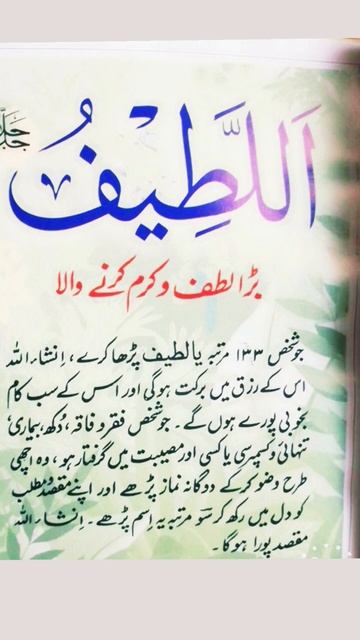 اَللَّطِیفُ
جَلَّ جَلَالُہٗ
بڑا لطف و کرم کرنے والا
جو شخص ۱۳۳ مرتبہ یا لطیف پڑھا کرے، اِنشاءاللہ
اس کے رزق میں برکت ہو گی اور اس کے سب کام
بخوبی پورے ہوں گے۔ جو شخص فقر و فاقہ، دُکھ، بیماری،
تنہائی و کسمپرسی یا کسی اور مصیبت میں گرفتار ہو، وہ اچھی
طرح وضو کر کے دوگانہ نماز پڑھے اور اپنے مقصد و مطلب
کو دل میں رکھ کر سَو مرتبہ یہ اِسم پڑھے۔ اِنشاءاللہ
مقصد پورا ہو گا۔